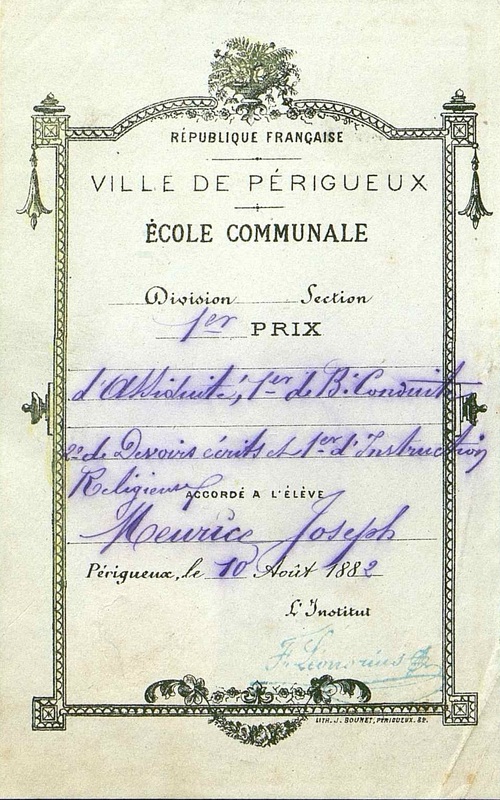 RÉPUBLIQUE FRANÇAISE
VILLE DE PÉRIGUEUX
ÉCOLE COMMUNALE
Division Section
1er PRIX
d'Assiduité, 1er de B. Conduite
2e de Devoirs écrits et 1er d'Instruction
Religieuse
ACCORDÉ A L'ÉLÈVE
Meurice Joseph
Périgueux, le 10 Août 1882
L'Institut
LITH. J. BOUNET, PÉRIGUEUX. 82.